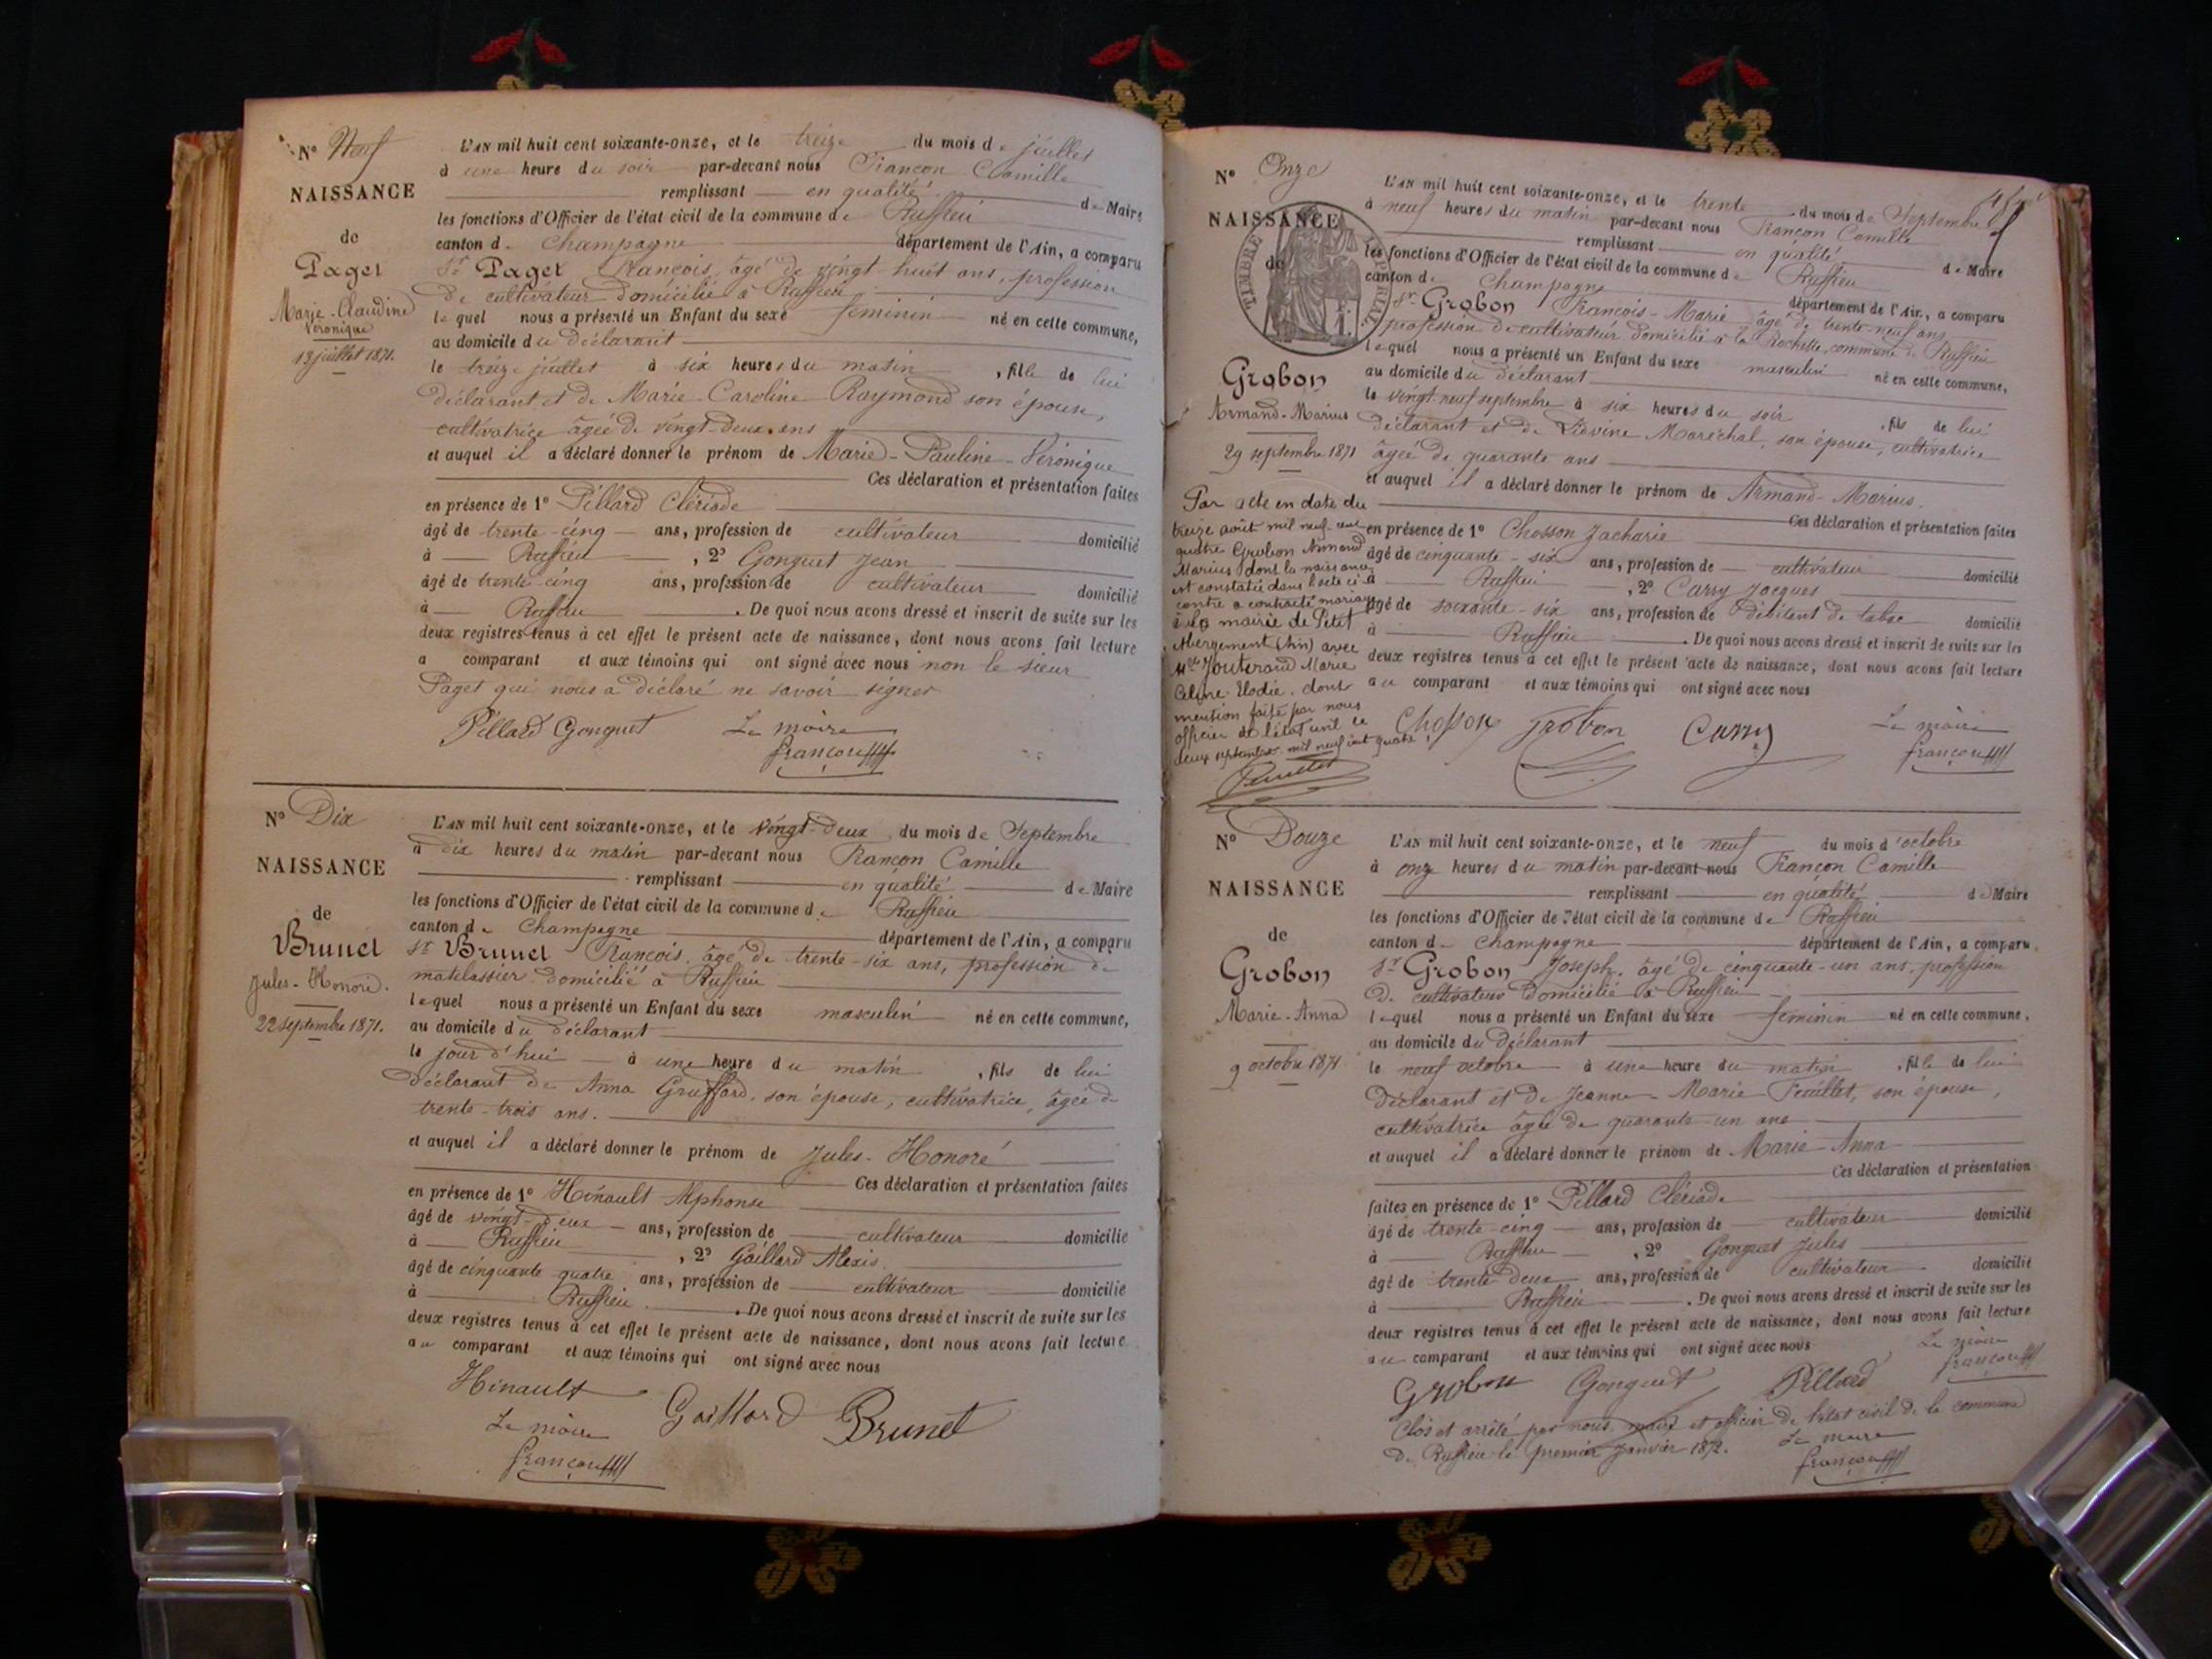 N° Neuf
NAISSANCE
de
Paget
Marie-Claudine
Véronique
13 juillet 1871.
L'AN mil huit cent soixante-onze, et le treize du mois de juillet
à une heure du soir par-devant nous Françon Camille
remplissant en qualité de Maire
les fonctions d'Officier de l'état civil de la commune de Ruffieu
canton de Champagne département de l'Ain, a comparu
Sr Paget François, âgé de vingt-huit ans, profession
de cultivateur domicilié à Ruffieu
lequel nous a présenté un Enfant du sexe féminin né en cette commune,
au domicile du déclarant
le treize juillet à six heures du matin, fille de lui
déclarant et de Marie-Caroline Raymond son épouse,
cultivatrice âgée de vingt-deux ans
et auquel il a déclaré donner le prénom de Marie-Pauline-Véronique
Ces déclaration et présentation faites
en présence de 1° Pillard Clériade
âgé de trente-cinq ans, profession de cultivateur domicilié
à Ruffieu, 2° Gonguet Jean
âgé de trente-cinq ans, profession de cultivateur domicilié
à Ruffieu. De quoi nous avons dressé et inscrit de suite sur les
deux registres tenus à cet effet le présent acte de naissance, dont nous avons fait lecture
a comparant et aux témoins qui ont signé avec nous non le sieur
Paget qui nous a déclaré ne savoir signer
Pillard Gonguet Le maire
françon
N° Dix
NAISSANCE
de
Brunet
Jules-Honoré.
22 septembre 1871.
L'AN mil huit cent soixante-onze, et le vingt-deux du mois de Septembre
à dix heures du matin par-devant nous Françon Camille
remplissant en qualité de Maire
les fonctions d'Officier de l'état civil de la commune de Ruffieu
canton de Champagne département de l'Ain, a comparu
Sr Brunet François, âgé de trente-six ans, profession de
matelassier domicilié à Ruffieu
lequel nous a présenté un Enfant du sexe masculin né en cette commune,
au domicile du déclarant
le jour d'hui à une heure du matin, fils de lui
déclarant de Anna Gruffard, son épouse, cultivatrice, âgée de
trente-trois ans.
et auquel il a déclaré donner le prénom de Jules-Honoré
Ces déclaration et présentation faites
en présence de 1° Hinault Alphonse
âgé de vingt-deux ans, profession de cultivateur domicilié
à Ruffieu, 2° Gaillard Alexis.
âgé de cinquante quatre ans, profession de cultivateur domicilié
à Ruffieu. De quoi nous avons dressé et inscrit de suite sur les
deux registres tenus à cet effet le présent acte de naissance, dont nous avons fait lecture
au comparant et aux témoins qui ont signé avec nous
Hinault
Gaillard Brunet
Le maire
françon
N° Onze
NAISSANCE
de
TIMBRE IMPÉRIAL
Grobon
Armand-Marius
29 septembre 1871
Par acte en date du
treize août mil neuf-cent
quatre Grobon Armand
Marius dont la naissance
est constatée dans l'acte ci-
contre a contracté mariage
à la mairie de Petit
Abergement (Ain) avec
Mlle Jouterand Marie
Celine-Elodie. dont
mention faite par nous
officier de l'état civil le
deux septembre mil neuf cent quatre
L'AN mil huit cent soixante-onze, et le trente du mois de Septembre
à neuf heures du matin par-devant nous Françon Camille
remplissant en qualité de Maire
les fonctions d'Officier de l'état civil de la commune de Ruffieu
canton de Champagne département de l'Ain, a comparu
Sr Grobon François-Marie âgé de trente-neuf ans
profession de cultivateur domicilié à la Rochette, commune de Ruffieu
lequel nous a présenté un Enfant du sexe masculin né en cette commune,
au domicile du déclarant
le vingt-neuf septembre à six heures du soir, fils de lui
déclarant et de Lidvine Maréchal, son épouse, cultivatrice
âgée de quarante ans
et auquel il a déclaré donner le prénom de Armand-Marius.
Ces déclaration et présentation faites
en présence de 1° Chosson Zacharie
âgé de cinquante-six ans, profession de cultivateur domicilié
à Ruffieu, 2° Carry Jacques
âgé de soixante-six ans, profession de débitant de tabac domicilié
à Ruffieu. De quoi nous avons dressé et inscrit de suite sur les
deux registres tenus à cet effet le présent acte de naissance, dont nous avons fait lecture
au comparant et aux témoins qui ont signé avec nous
Chosson Grobon Carry Le maire
françon
N° Douze
NAISSANCE
de
Grobon
Marie-Anna
9 octobre 1871
L'AN mil huit cent soixante-onze, et le neuf du mois d'octobre
à onze heures du matin par-devant nous Françon Camille
remplissant en qualité de Maire
les fonctions d'Officier de l'état civil de la commune de Ruffieu
canton de Champagne département de l'Ain, a comparu
Sr Grobon Joseph, âgé de cinquante-un ans, profession
de cultivateur domicilié à Ruffieu
lequel nous a présenté un Enfant du sexe féminin né en cette commune,
au domicile du déclarant
le neuf octobre à une heure du matin, fille de lui
déclarant et de Jeanne-Marie Feuillet, son épouse,
cultivatrice âgée de quarante-un ans
et auquel il a déclaré donner le prénom de Marie-Anna
Ces déclaration et présentation
faites en présence de 1° Pillard Clériade
âgé de trente-cinq ans, profession de cultivateur domicilié
à Ruffieu, 2° Gonguet Jules
âgé de trente deux ans, profession de cultivateur domicilié
à Ruffieu. De quoi nous avons dressé et inscrit de suite sur les
deux registres tenus à cet effet le présent acte de naissance, dont nous avons fait lecture
au comparant et aux témoins qui ont signé avec nous Le maire
Grobon Gonguet Pillard françon
Clos et arrêté par nous maire et officier de l'état civil de la commune
de Ruffieu le premier Janvier 1872. Le maire
françon